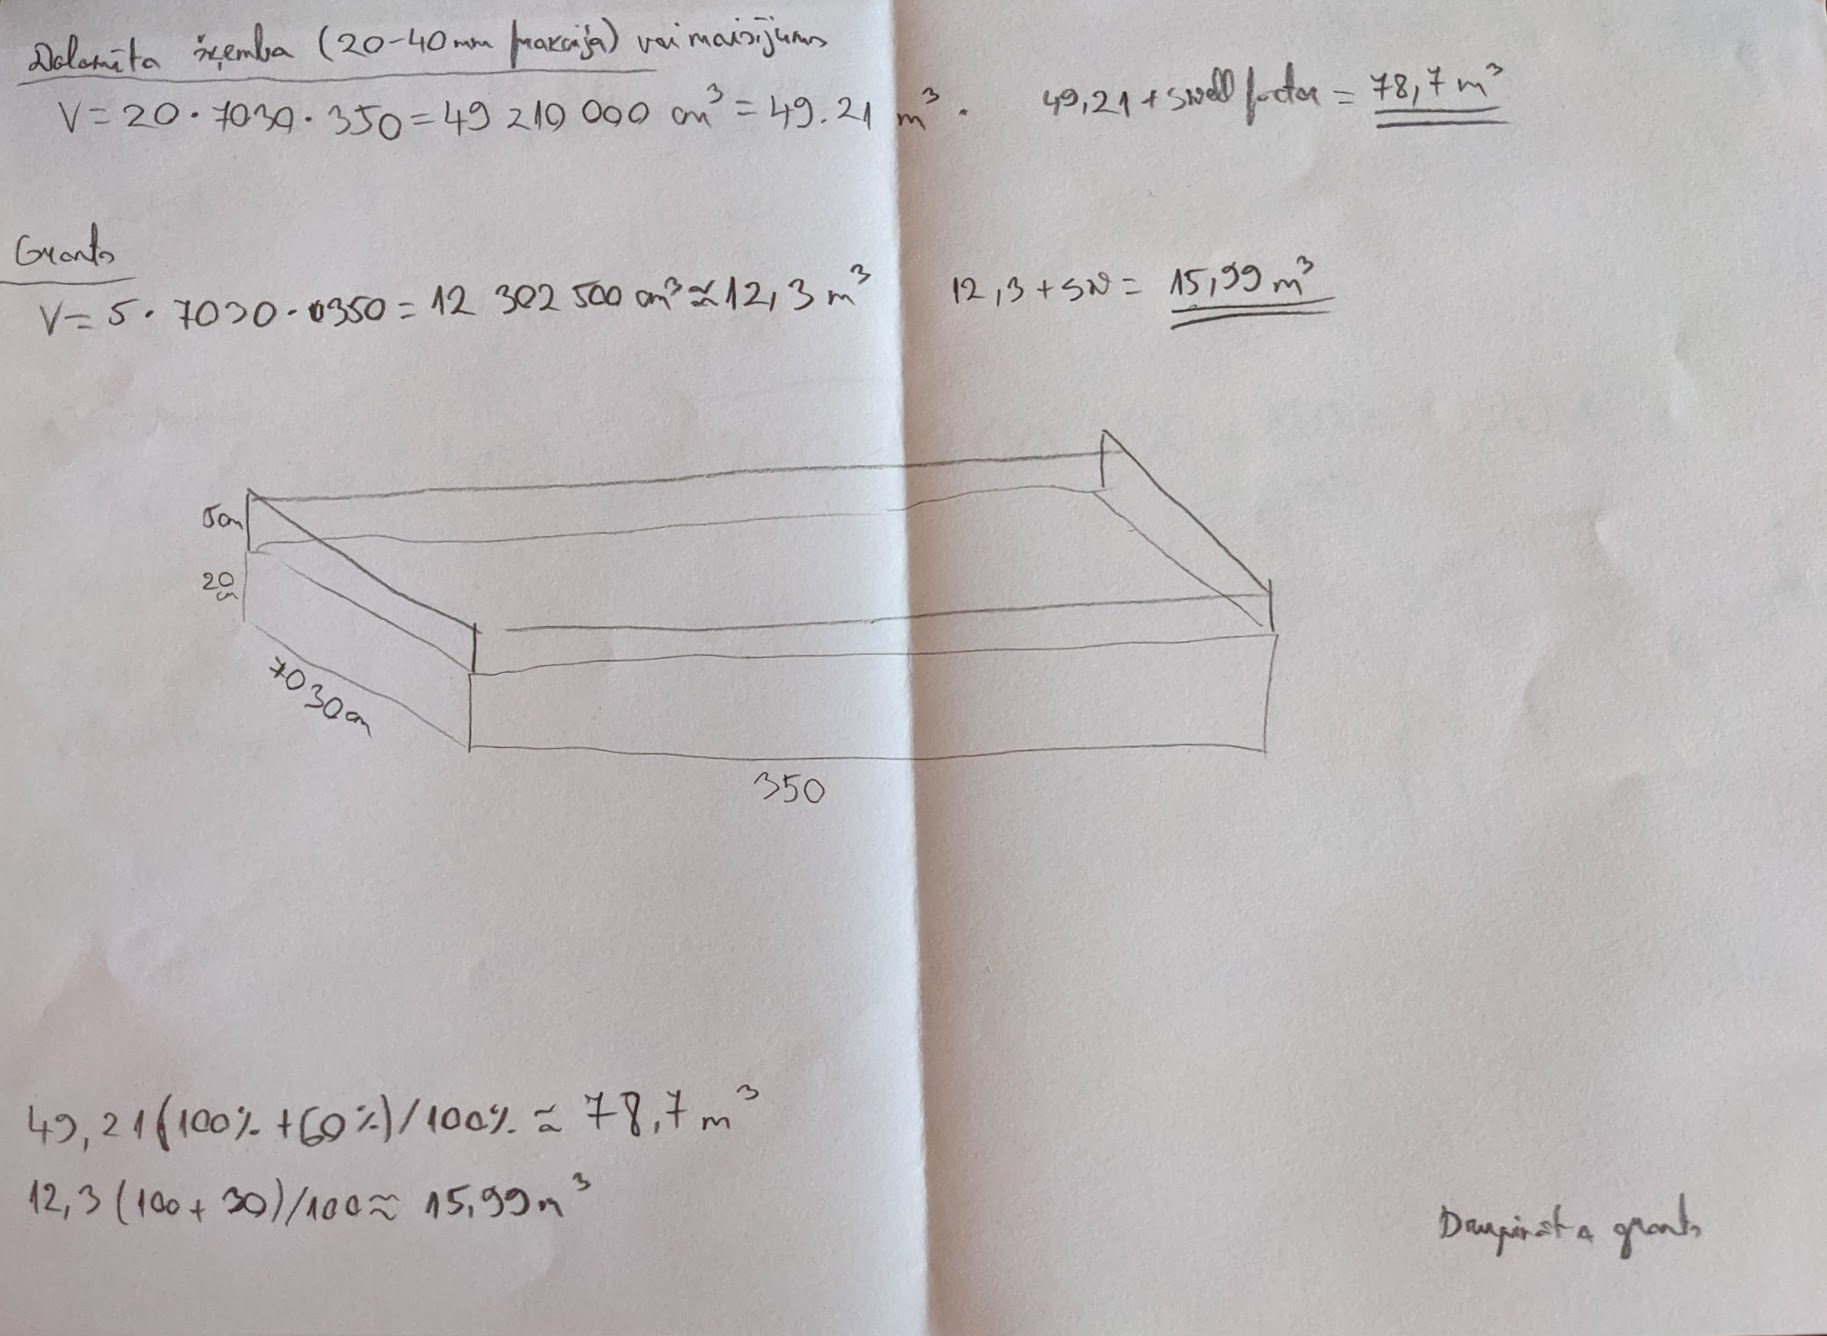 Dolomīta šķemba (20-40mm frakcija) vai maisījums
V = 20 · 7030 · 350 = 49 210 000 cm³ = 49.21 m³ .
49,21 + swell factor = 78,7 m³
Grants
V = 5 · 7030 · 0350 = 12 302 500 cm³ ≈ 12,3 m³
12,3 + SW = 15,99 m³
5cm
20 cm
7030cm
350
49,21 (100% + 60%) / 100% ≈ 78,7 m³
12,3 (100 + 30) / 100 ≈ 15,99 m³
Drupināta grants